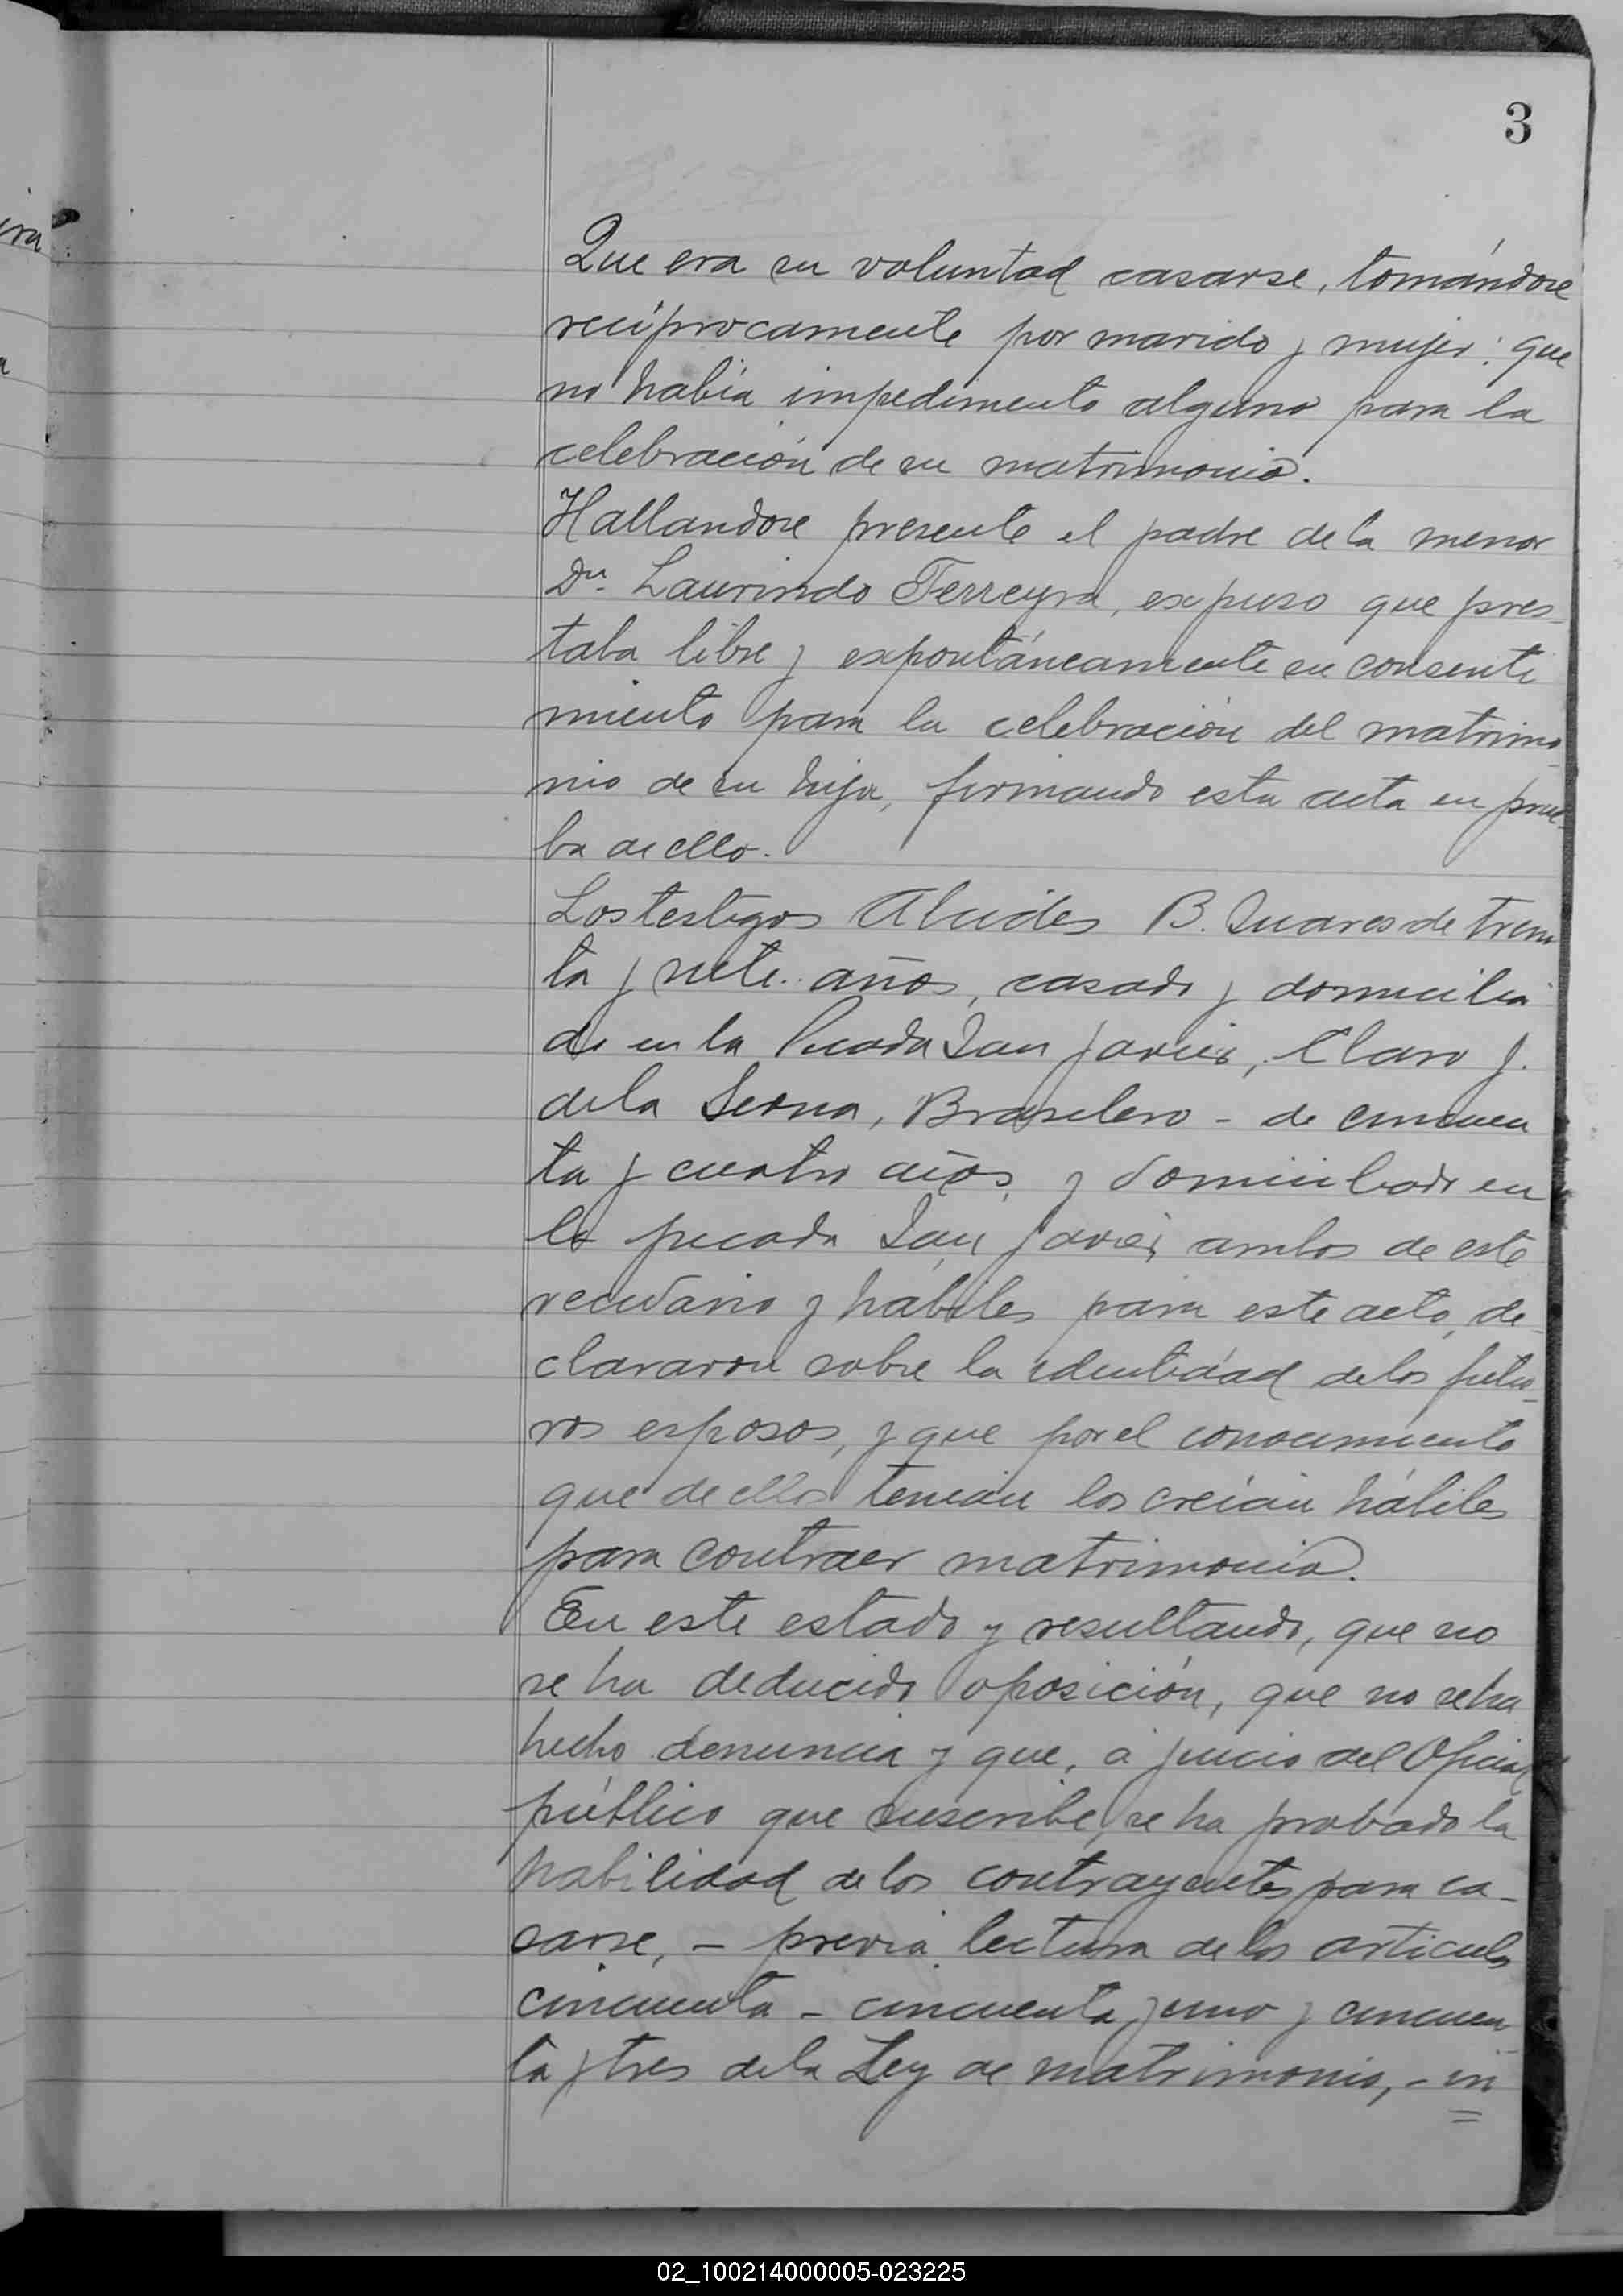 3
Que era su voluntad casarse, tomándose
recíprocamente por marido y mujer: que
no había impedimento alguno para la
celebración de su matrimonio.
Hallandose presente el padre de la menor
Dn. Laurindo Ferreyra, expuso que pres-
taba libre y expontáneamente su consenti
miento para la celebración del matrimo-
nio de su hija, firmando esta acta en prue-
ba de ello.
Los testigos Alcides B. Suares de trein
ta y siete años, casado y domicilia
do en la Picada San Javier, Claro J.
de la Serna, Brasilero - de cincuen
ta y cuatro años, y domiciliado en
la picada San Javier, ambos de este
vecindario y hábiles para este acto, de-
clararon sobre la identidad de los futu-
ros esposos, y que por el conocimiento
que de ellos tenían los creían hábiles
para contraer matrimonio.
En este estado y resultando, que no
se ha deducido oposición, que no se ha
hecho denuncia y que, á juicio del Oficial
público que suscribe, se ha probado la
habilidad de los contrayentes para ca-
sarse, - previa lectura de los articulos
cincuenta - cincuenta y uno y cincuen-
ta y tres de la Ley de matrimonio, - in
02_100214000005-023225